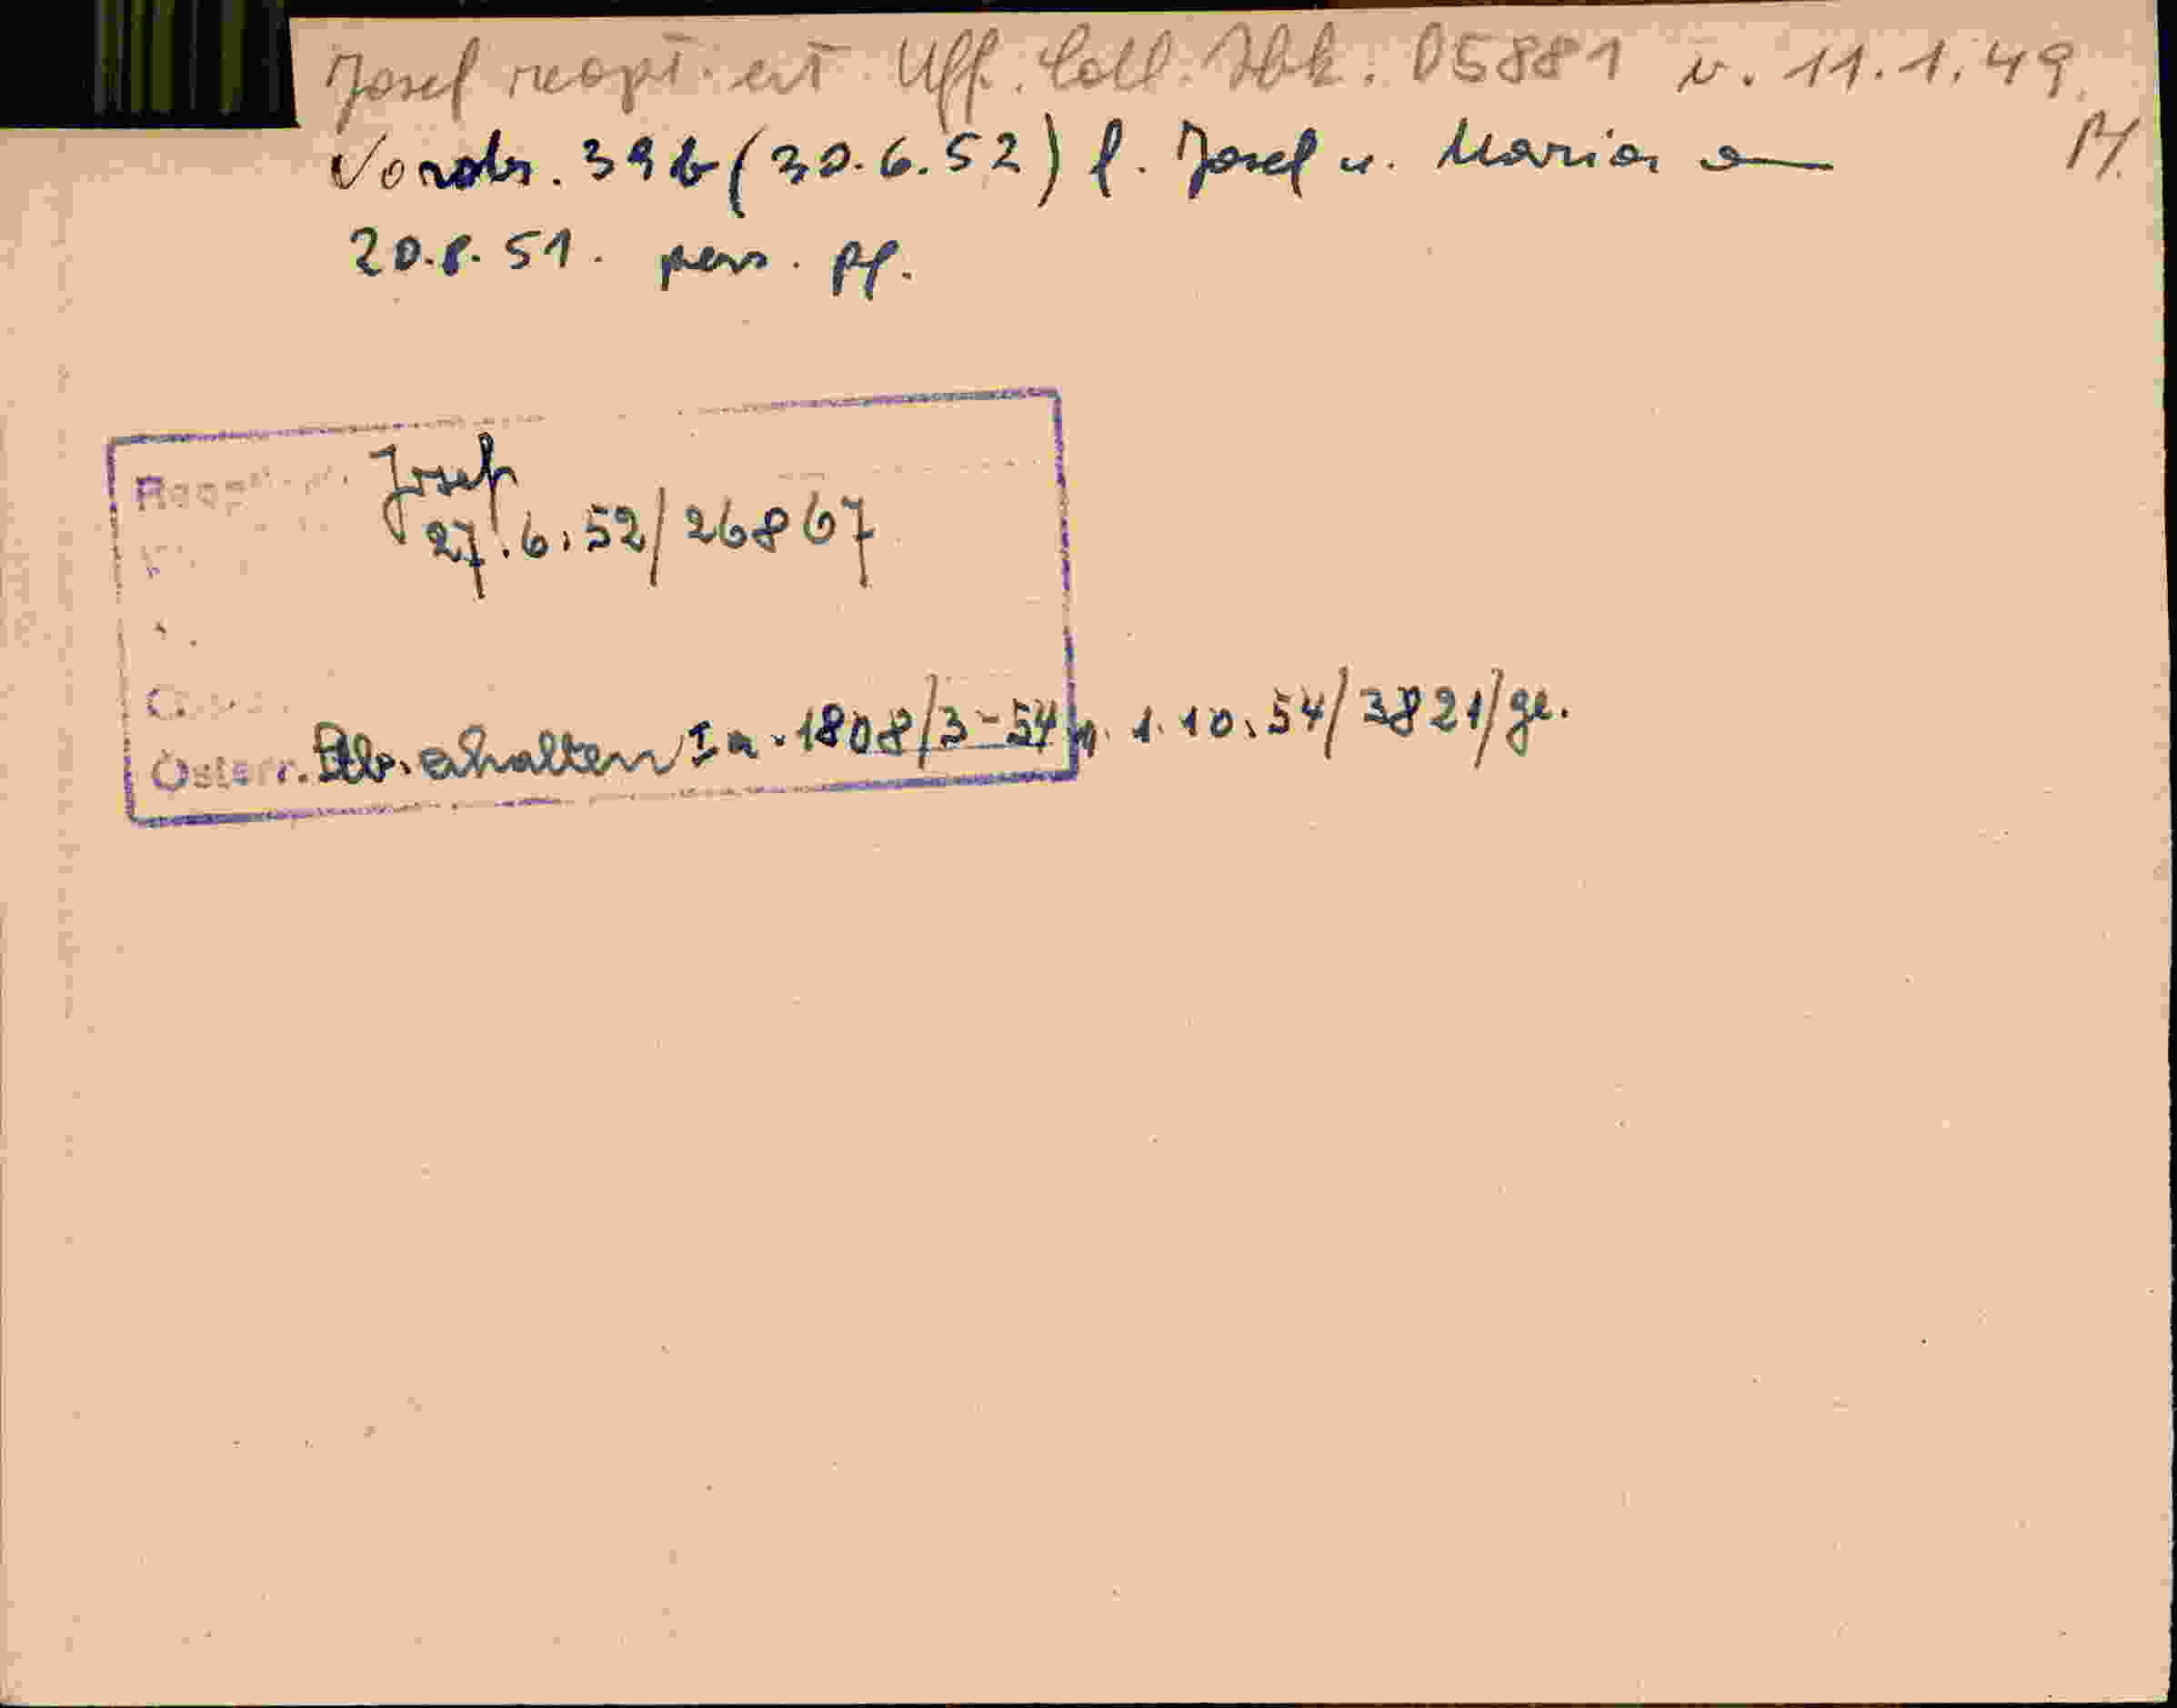 Josef reopt. lt. Uff. Coll. Ibk. 05881 v. 11.1.49.
Vordr. 39b (30.6.52) f. Josef u. Maria
20.8.51. pers. Pf.
Josef
27.6.52/26867
Österr. Stb. erhalten Ia-1808/3-54 v. 1.10.54/3821/ge.